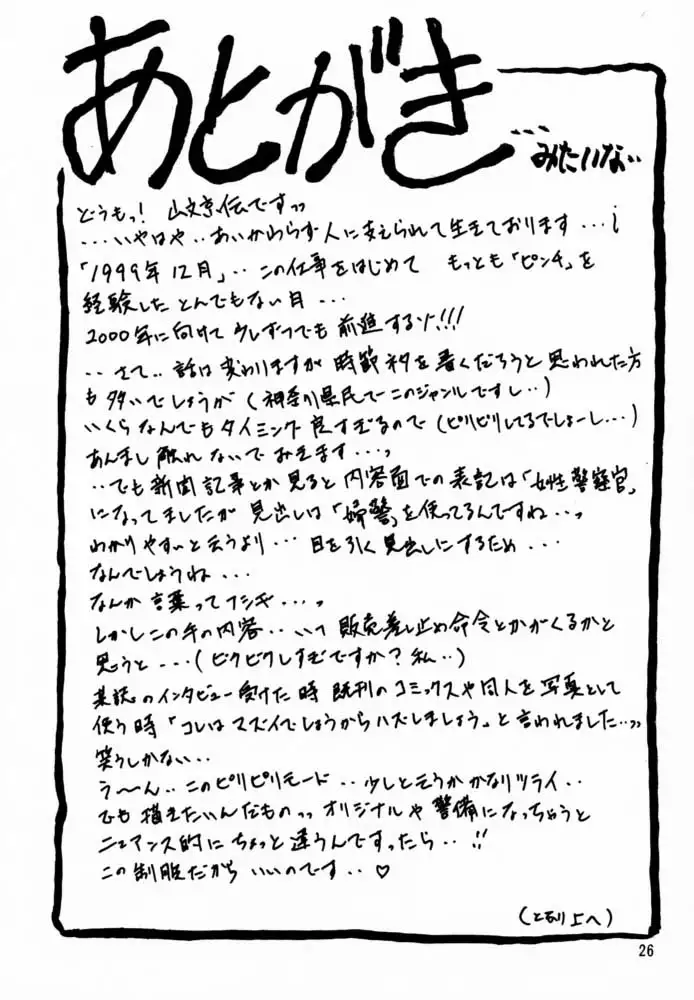 あとがき
...みたいな..
どうもっ! 山文京伝ですっっ
...いやはや..あいかわらず人に支えられて生きております...i
「1999年12月」..この仕事をはじめて もっとも「ピンチ」を
経験したとんでもない月...
2000年に向けて少しずつでも前進するゾ!!!
..さて..話は変わりますが時節ネタを書くだろうと思われた方
も多いでしょうが(神奈川県民でこのジャンルですし..)
いくらなんでもタイミング良すぎるので(ピリピリしてるでしょーし...)
あんまし触れないでおきます...っ
..でも新聞記事とか見ると内容面での表記は「女性警察官」
になってましたが見出しは「婦警」を使ってるんですね..っ
わかりやすいと云うより...目を引く見出しにするため...
なんでしょうね...
なんか言葉ってフシギ...っ
しかしこの手の内容..いつ販売差し止め命令とかがくるかと
思うと...(ビクビクしすぎですか?私..)
某誌のインタビュー受けた時既刊のコミックスや同人を写真として
使う時「コレはマズイでしょうからハズしましょう」と言われました..っっ
笑うしかない..
う〜ん..このピリピリモード..少しと云うかかなりツライ..
でも描きたいんだものっっオリジナルや警備になっちゃうと
ニュアンス的にちょっと違うんですったら..!!
この制服だからいいのです..♡
(となり上へ)
26